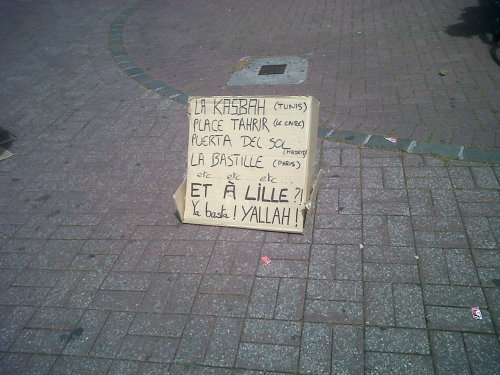 LA KASBAH (TUNIS)
PLACE TAHRIR (LE CAIRE)
PUERTA DEL SOL (MADRID)
LA BASTILLE (PARIS)
etc... etc... etc...
ET À LILLE ?!
Ya basta ! YALLAH !